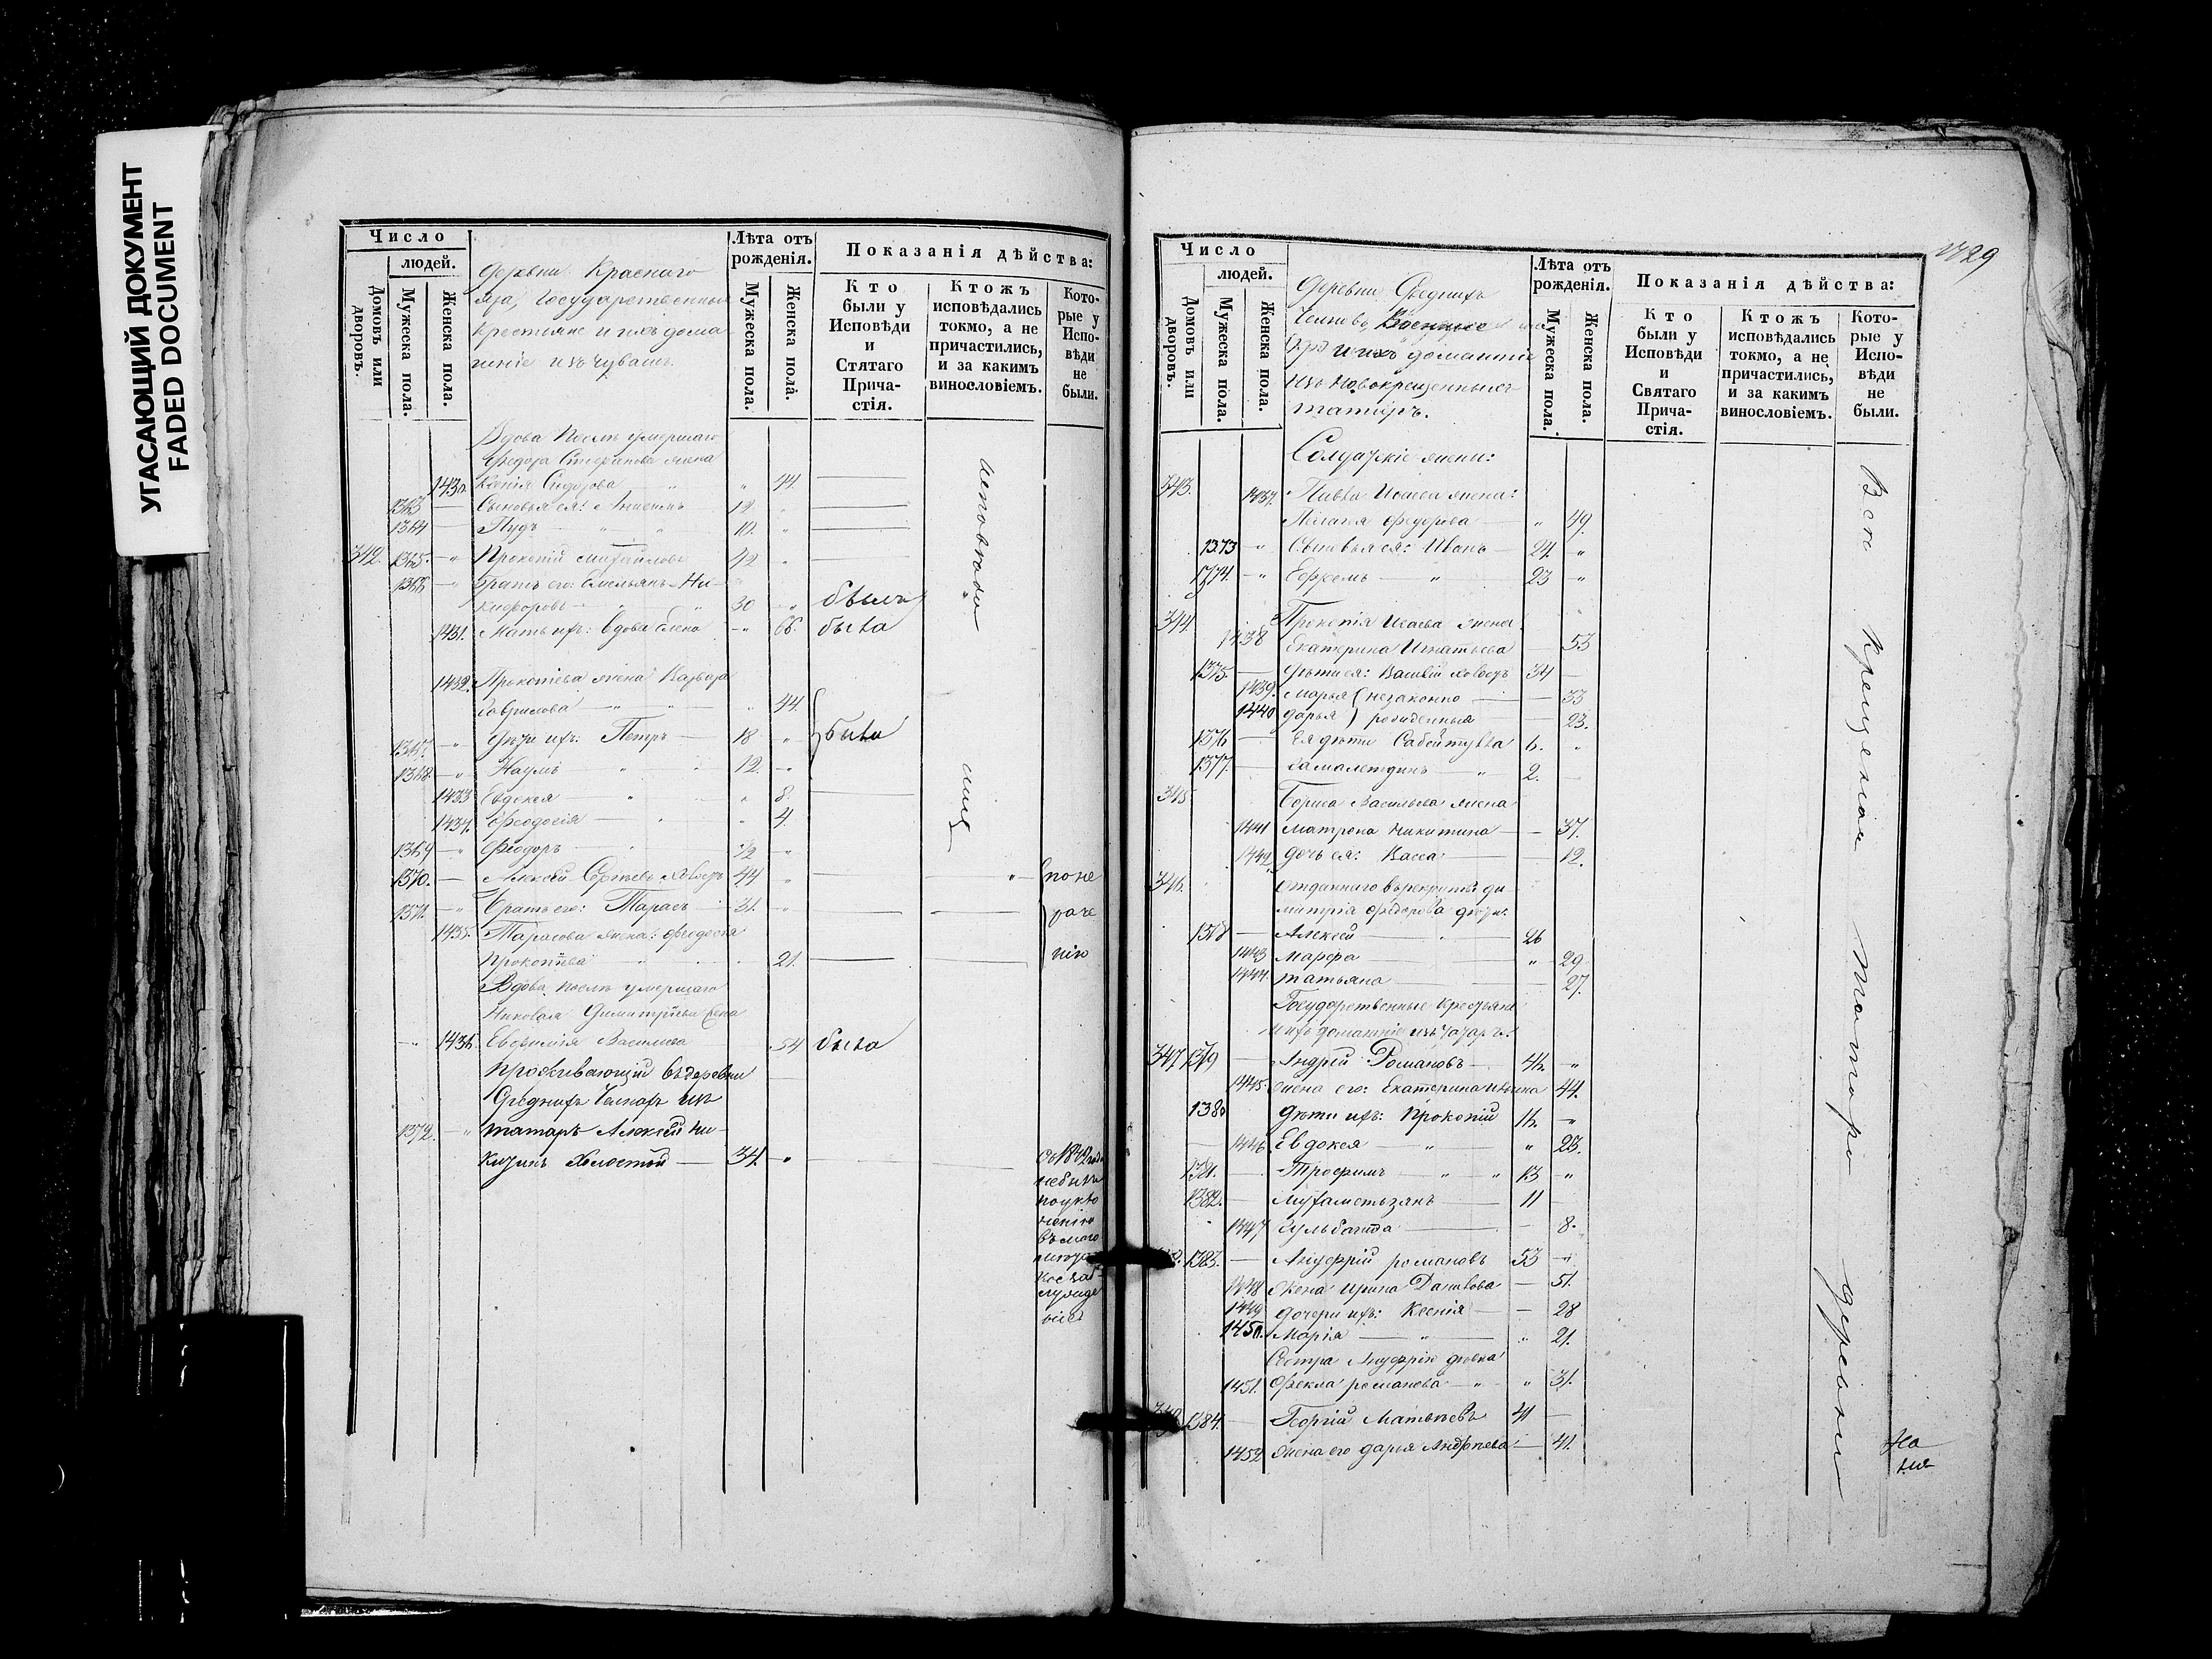 УГАСАЮЩИЙ ДОКУМЕНТ
FADED DOCUMENT
Число
людей.
Домовъ или дворовъ.
Мужеска пола.
Женска пола.
Деревни Краснаго
Яра, Государственные
крестьяне и ихъ дома
шніе изъ чувашъ.
Лѣта отъ рожденія.
Мужеска пола.
Женска пола.
Показанія дѣйства:
Кто были у Исповѣди и Стятаго Прича-стія.
Ктожъ исповѣдались токмо, а не причастились, и за какимъ винословіемъ.
Кото-рые у Испо-вѣди не были.
Вдова послѣ умершаго
Федора Степанова жена
1430 Ксенія Сидорова 44.
1363 Сыновья ея: 12
1364 Пудъ 10.
342. 1365. Прокопій Михайловъ 42
1366 Братъ его: Емельянъ Ни-
кифоровъ 30 былъ
1431. Мать ихъ: вдова Елена 66. была
1432. Прокопіева жена Варвара
Гаврилова 44.
1367. Дѣти ихъ: Петръ 18 были
1368. Наумъ 12.
1433 Евдокея 8.
1434. Феодосія 4.
1369 Феодоръ 1/2
1370. Алексей Сергѣевъ 44 по не
1371. Братъ его: Тарасъ 31. раче
1435. Тарасова жена: Федосья
Прокопіева 21. нію
Вдова послѣ умершаго
Николая Димитріева жена
1436 Евфимія Василева 54 была
Проживающій въ деревни
Среднихъ Челнахъ изъ
1372. татаръ Алексей Ни-
холостой 34.
Съ 1842 года
не былъ
по укло
ненію
въ маго
метан
ское за
блужде
ніе
Число
людей.
Домовъ или дворовъ.
Мужеска пола.
Женска пола.
Деревни Среднихъ
Челновъ,
и ихъ домашніе
изъ новокрещенныхъ
татаръ.
Лѣта отъ рожденія.
Мужеска пола.
Женска пола.
Показанія дѣйства:
Кто были у Исповѣди и Святаго Прича-стія.
Ктожъ исповѣдались токмо, а не причастились, и за какимъ винословіемъ.
Кото-рые у Испо-вѣди не были.
Солдатскіе жены:
343. 1437. Павла Исаева жена:
Пелагея Федорова 49.
1373 Сыновья ея: Иванъ 24.
1374. Ефремъ 23
344 Прокопія Исаева жена
1438 Екатерина Игнатьева 53
1375. Дѣти ея: Василій холостъ 34
1439. Марья (незаконно 33
1440 Дарья) рожденныя 23.
1376 Ея дѣти 6.
1377. Камалетдинъ 2.
345 Бориса Васильева жена
1441 Матрена Никитина 37.
1442 Дочь ея: Васса 12.
346. Отданнаго въ рекруты Ди-
митрія Федорова дѣти:
1378 Алексей 26
1443 Марфа 29
1444. Татьяна 27.
Государственные крестьяне
и ихъ домашніе изъ татаръ:
347 1379 Андрей Романовъ 46.
1445. Жена его: Екатерина 44.
1380 Дѣти ихъ: Прокопій 16.
1446. Евдокея 23.
1381. Трофимъ 13
1382. Мухаметьзянъ 11
1447 8.
1383. Ануфрій Романовъ 53
1448 Жена Ирина Данилова 51.
1449 Дочери ихъ: Ксенія 28
1450. Марія 21.
Сестра Ануфрію дѣвка
1451. Фекла Романова 31.
349. 1384. Георгій Матвѣевъ 41
1452 Жена его Дарья Андрѣева 41.
Всѣ крещеныя татара деревни